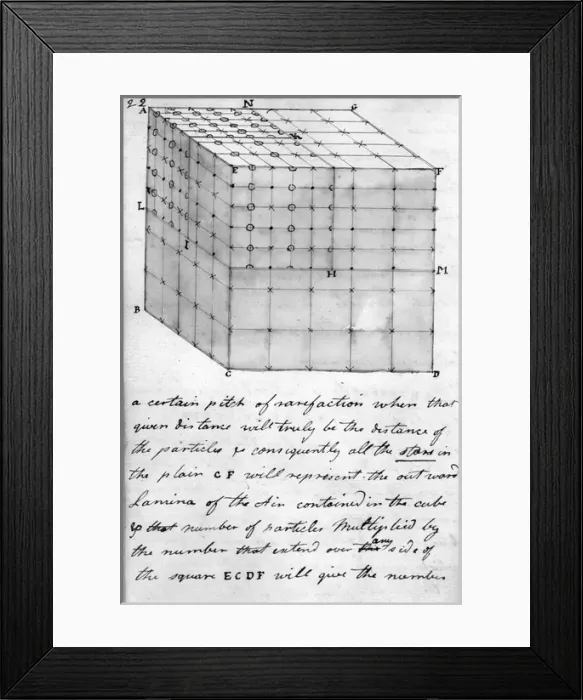 22
A N G
E F
L
I H M
B
C D
a certain pitch of rarefaction when that
given distance will truly be the distance of
the particles & consiquently all the stars in
the plain CF will represent the outward
Lamina of the Air contained in the cube
& that number of particles Multiplied by
the number that extend over the any side of
the square ECDF will give the number